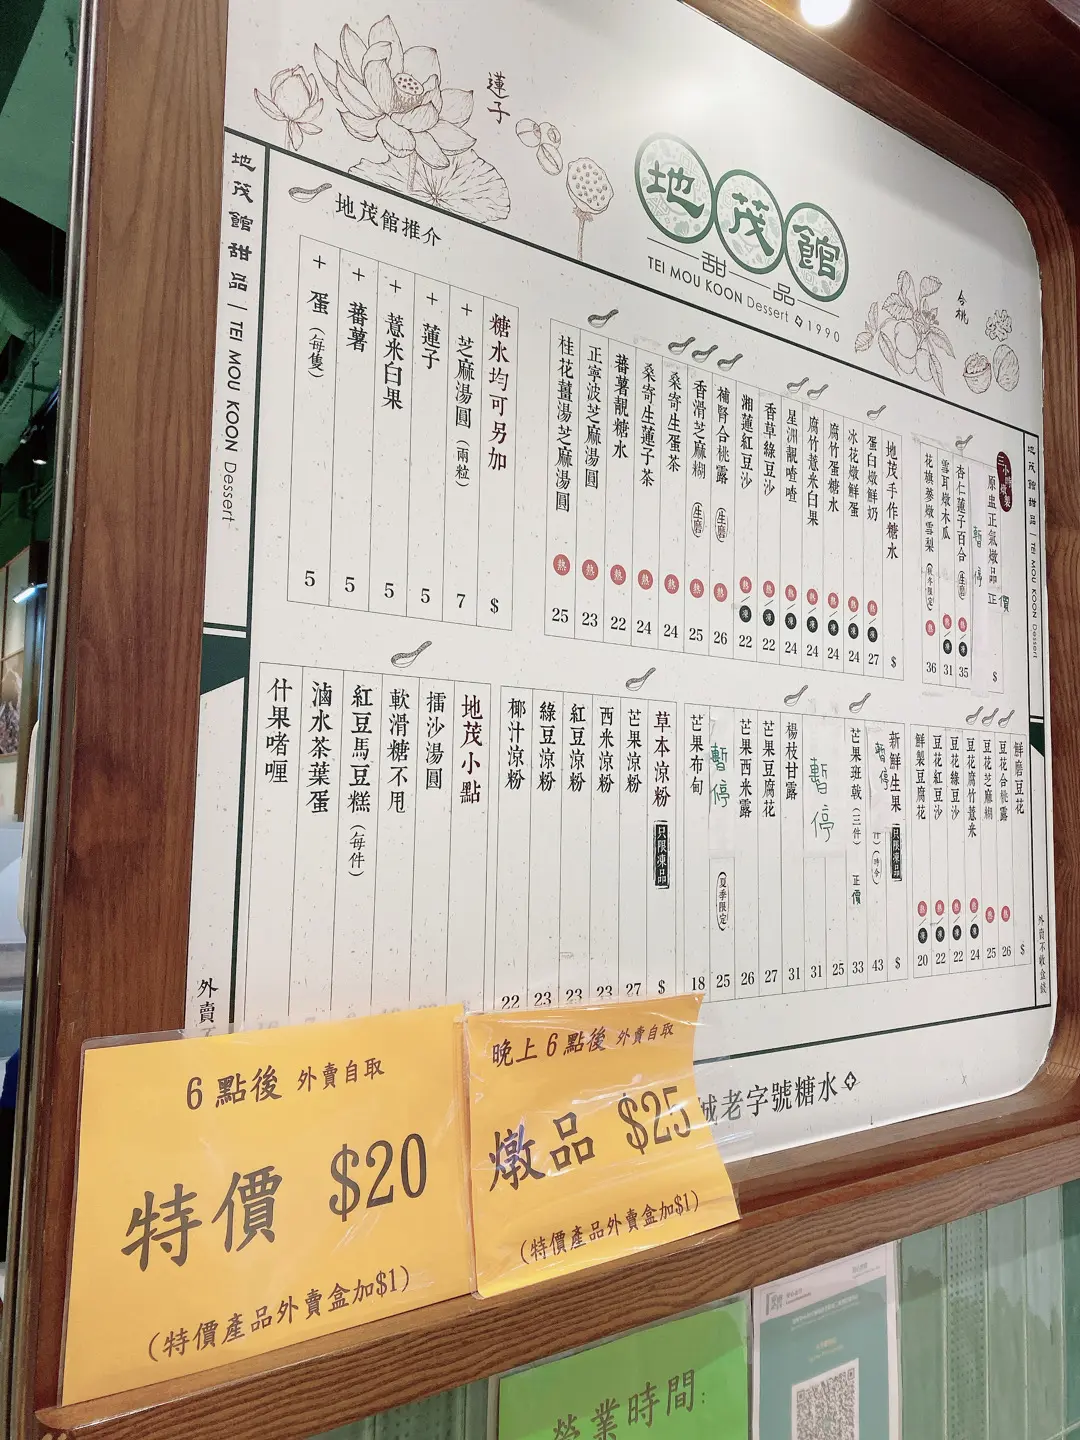 蓮子
地茂館
甜品
TEI MOU KOON Dessert 1990
合桃
地茂館甜品 | TEI MOU KOON Dessert
地茂館推介
三小時燉製
原盅正氣燉品 $
暫停
正價
杏仁蓮子百合(生磨) 熱/凍 35
雪耳燉木瓜 熱/凍 31
花旗蔘燉雪梨(秋冬限定) 熱 36
地茂手作糖水 $
蛋白燉鮮奶 熱/凍 27
冰花燉鮮蛋 熱/凍 24
腐竹蛋糖水 熱/凍 24
腐竹薏米白果 熱/凍 24
星洲靚喳喳 熱/凍 24
香草綠豆沙 熱/凍 22
湘蓮紅豆沙 熱/凍 22
補腎合桃露(生磨) 熱 26
香滑芝麻糊(生磨) 熱 25
桑寄生蛋茶 熱 24
桑寄生蓮子茶 熱 24
蕃薯靚糖水 熱 22
正寧波芝麻湯圓 熱 23
桂花薑湯芝麻湯圓 熱 25
糖水均可另加 $
+ 芝麻湯圓(兩粒) 7
+ 蓮子 5
+ 薏米白果 5
+ 蕃薯 5
+ 蛋(每隻) 5
地茂館甜品 | TEI MOU KOON Dessert
鮮磨豆花 $
豆花合桃露 熱 26
豆花芝麻糊 熱 25
豆花腐竹薏米 熱/凍 24
豆花綠豆沙 熱/凍 22
豆花紅豆沙 熱/凍 22
鮮製豆腐花 熱/凍 20
新鮮生果 只限凍品 $
暫停 (時令) 43
芒果班戟(三件) 正價 33
25
暫停 31
楊枝甘露 31
芒果豆腐花 27
芒果西米露 26
暫停(夏季限定) 25
芒果布甸 18
草本涼粉 只限凍品 $
芒果涼粉 27
西米涼粉 23
紅豆涼粉 23
綠豆涼粉 23
椰汁涼粉 22
地茂小點
擂沙湯圓
軟滑糖不甩
紅豆馬豆糕(每件)
滷水茶葉蛋
什果啫喱
外賣不收盒錢
外賣
城老字號糖水
6點後 外賣自取
特價 $20
(特價產品外賣盒加$1)
晚上6點後 外賣自取
燉品 $25
(特價產品外賣盒加$1)
營業時間: